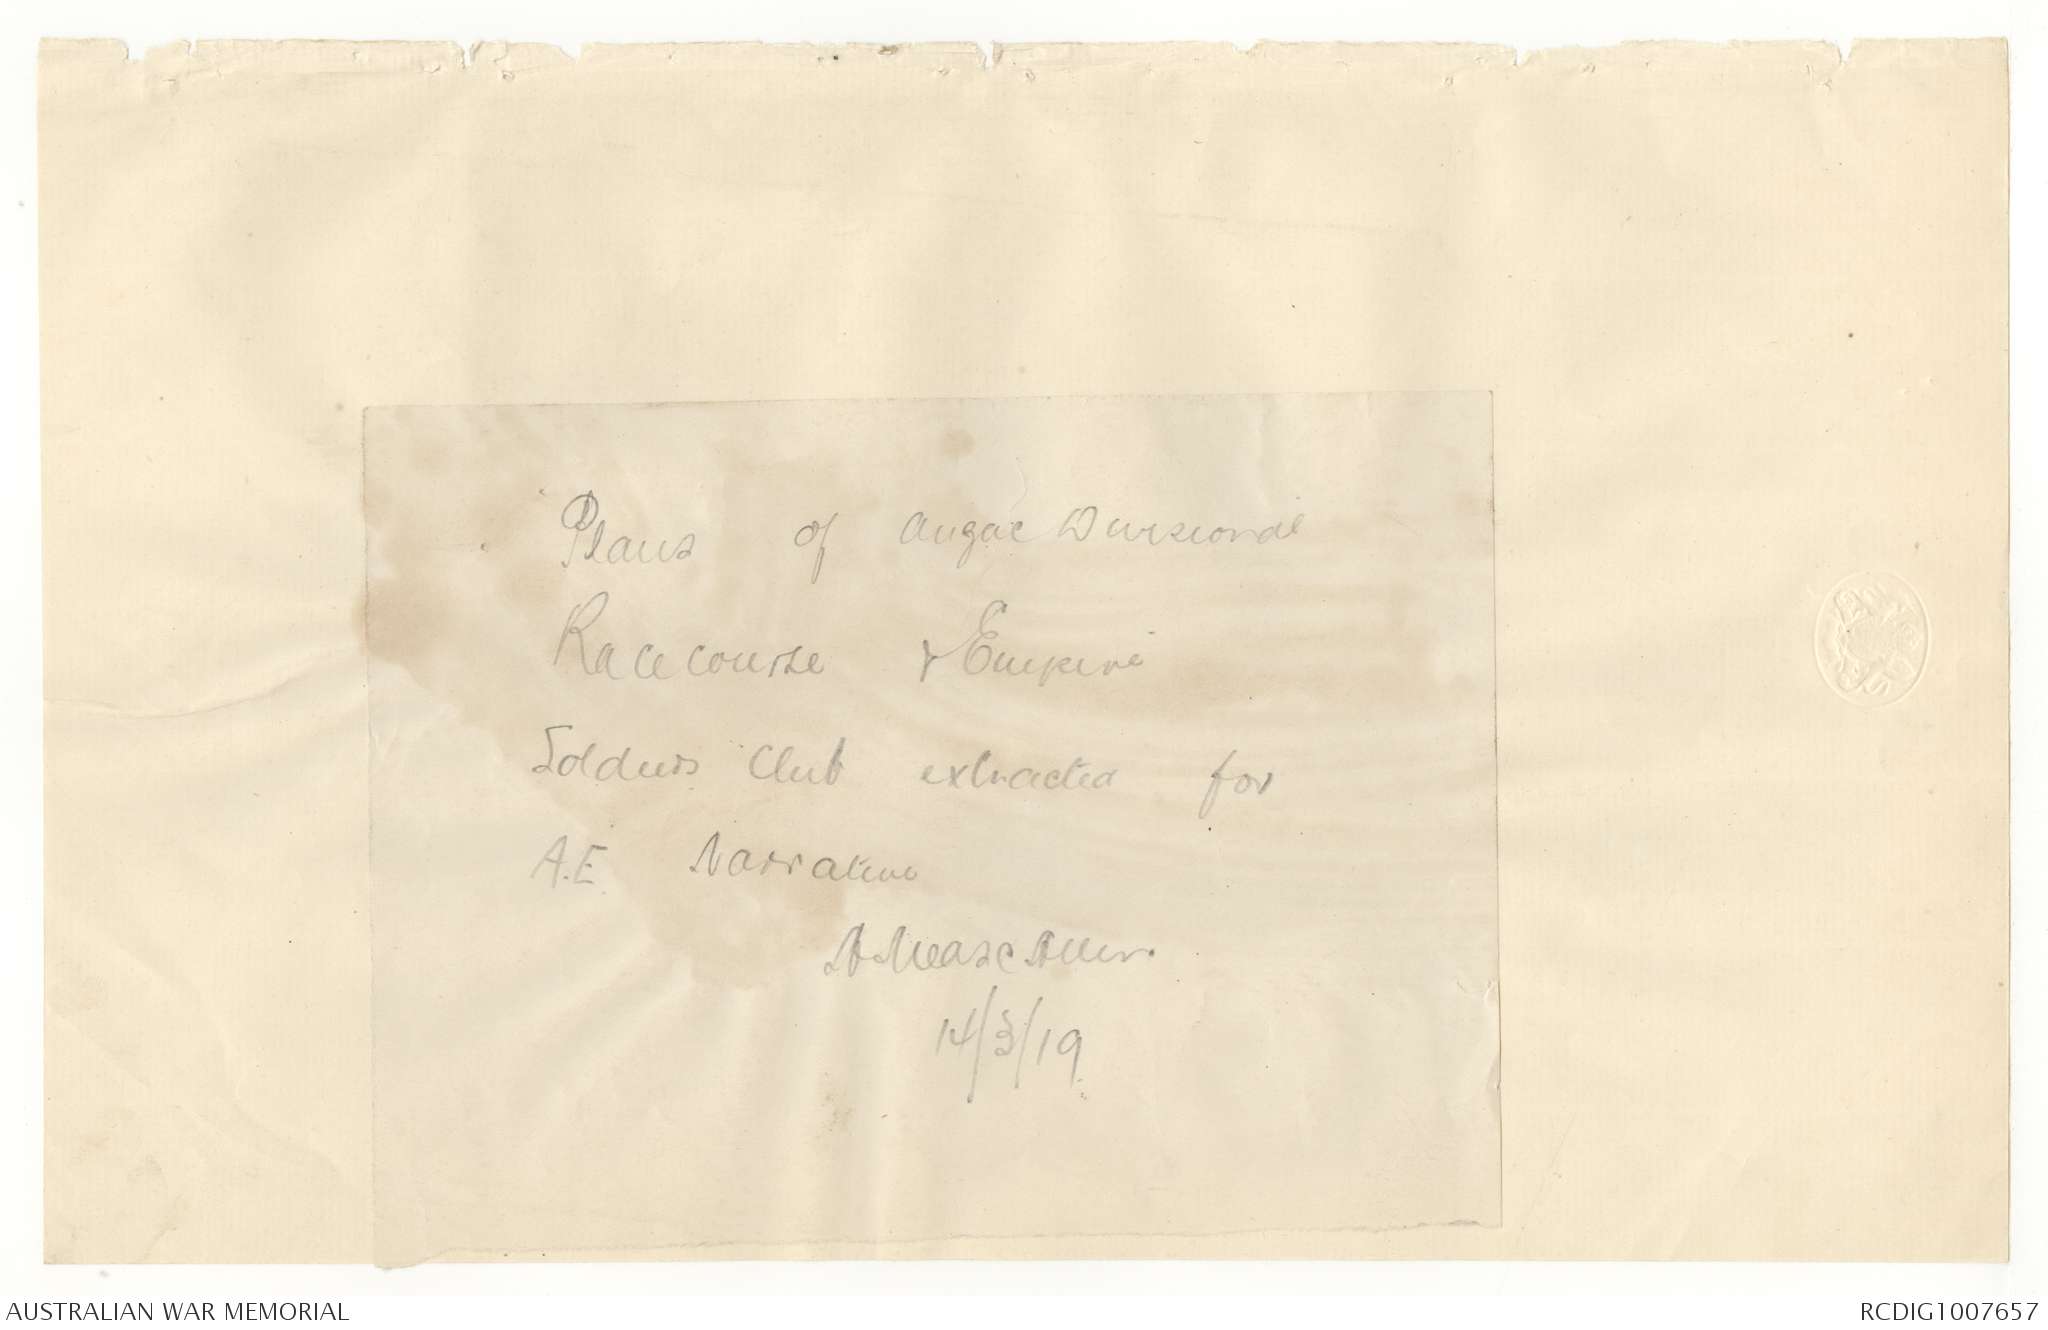 Plans of Anzac Divisional
Racecourse & Empire
Soldiers Club extracted for
A.E. Narrative
14/3/19
AUSTRALIAN WAR MEMORIAL
RCDIG1007657